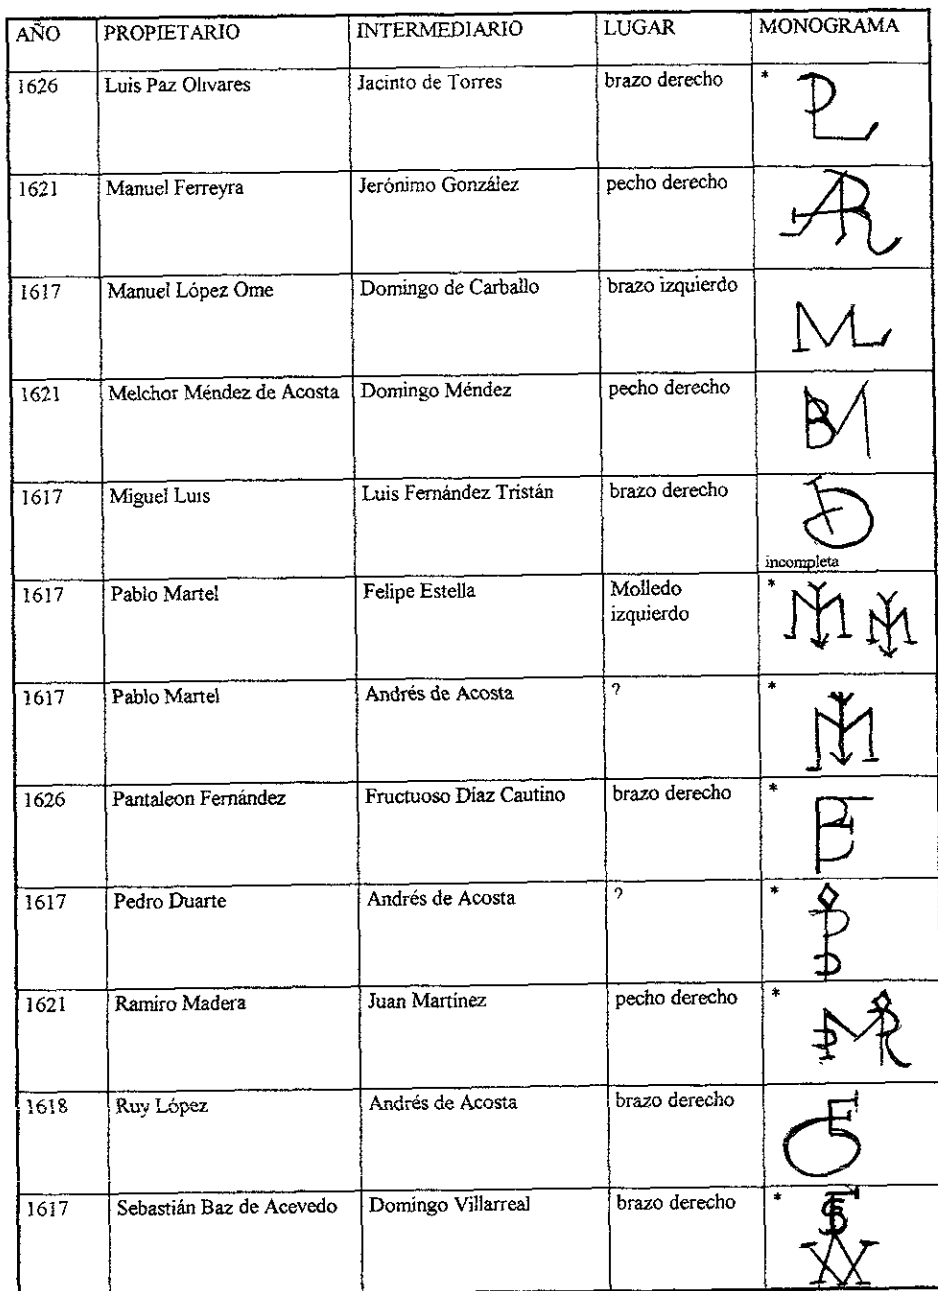 AÑO PROPIETARIO INTERMEDIARIO LUGAR MONOGRAMA
1626 Luis Paz Olivares Jacinto de Torres brazo derecho *
1621 Manuel Ferreyra Jerónimo González pecho derecho
1617 Manuel López Ome Domingo de Carballo brazo izquierdo
1621 Melchor Méndez de Acosta Domingo Méndez pecho derecho
1617 Miguel Luis Luis Fernández Tristán brazo derecho
incompleta
1617 Pablo Martel Felipe Estella Molledo *
izquierdo
1617 Pablo Martel Andrés de Acosta ? *
1626 Pantaleon Fernández Fructuoso Díaz Cautino brazo derecho *
1617 Pedro Duarte Andrés de Acosta ? *
1621 Ramiro Madera Juan Martínez pecho derecho *
1618 Ruy López Andrés de Acosta brazo derecho
1617 Sebastián Baz de Acevedo Domingo Villarreal brazo derecho *